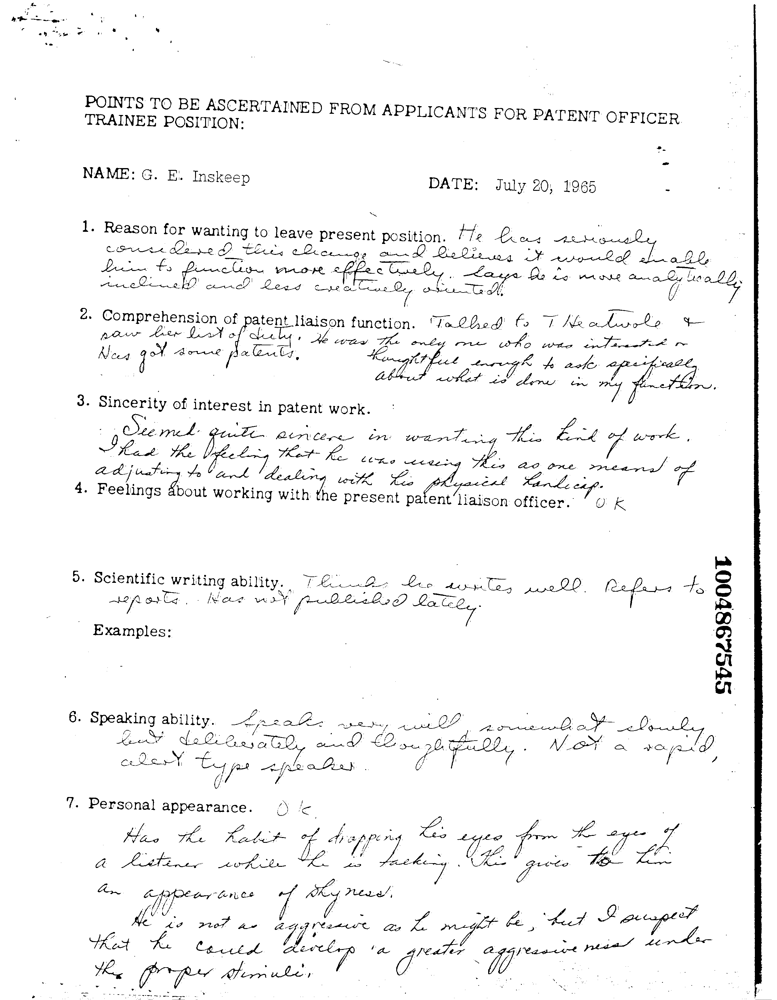 POINTS TO BE ASCERTAINED FROM APPLICANTS FOR PATENT OFFICER
TRAINEE POSITION:
NAME: G. E. Inskeep
DATE: July 20, 1965
1. Reason for wanting to leave present position. He has seriously
considered this change and believes it would enable
him to function more effectively. Says he is more analytically
inclined and less creatively oriented.
2. Comprehension of patent liaison function. Talked to T Heatwole &
saw her list of duty. He was the only one who was interested or
Has got some patents. thoughtful enough to ask specifically
about what is done in my function.
3. Sincerity of interest in patent work.
Seemed quite sincere in wanting this kind of work.
I had the feeling that he was using this as one means of
adjusting to and dealing with his physical handicap.
4. Feelings about working with the present patent liaison officer. OK
5. Scientific writing ability. Thinks he writes well. Refers to
reports. Has not published lately.
Examples:
6. Speaking ability. Speaks very well, somewhat slowly
but deliberately and thoughtfully. Not a rapid,
alert type speaker.
7. Personal appearance. OK
Has the habit of dropping his eyes from the eyes of
a listener while he is talking. This gives to him
an appearance of shyness.
He is not as aggressive as he might be, but I suspect
that he could develop a greater aggressiveness under
the proper stimuli.
1004867545